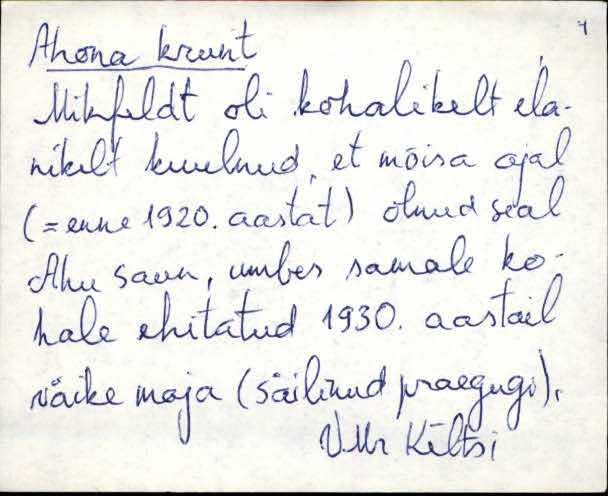 Ahona krunt
Mikfeldt oli kohalikelt ela-
nikelt kuulnud, et mõisa ajal
(= enne 1920. aastat) olnud seal
Ahu saun, umbes samale ko-
hale ehitatud 1930. aastail
väike maja (säilinud praegugi).
VMr Kiltsi